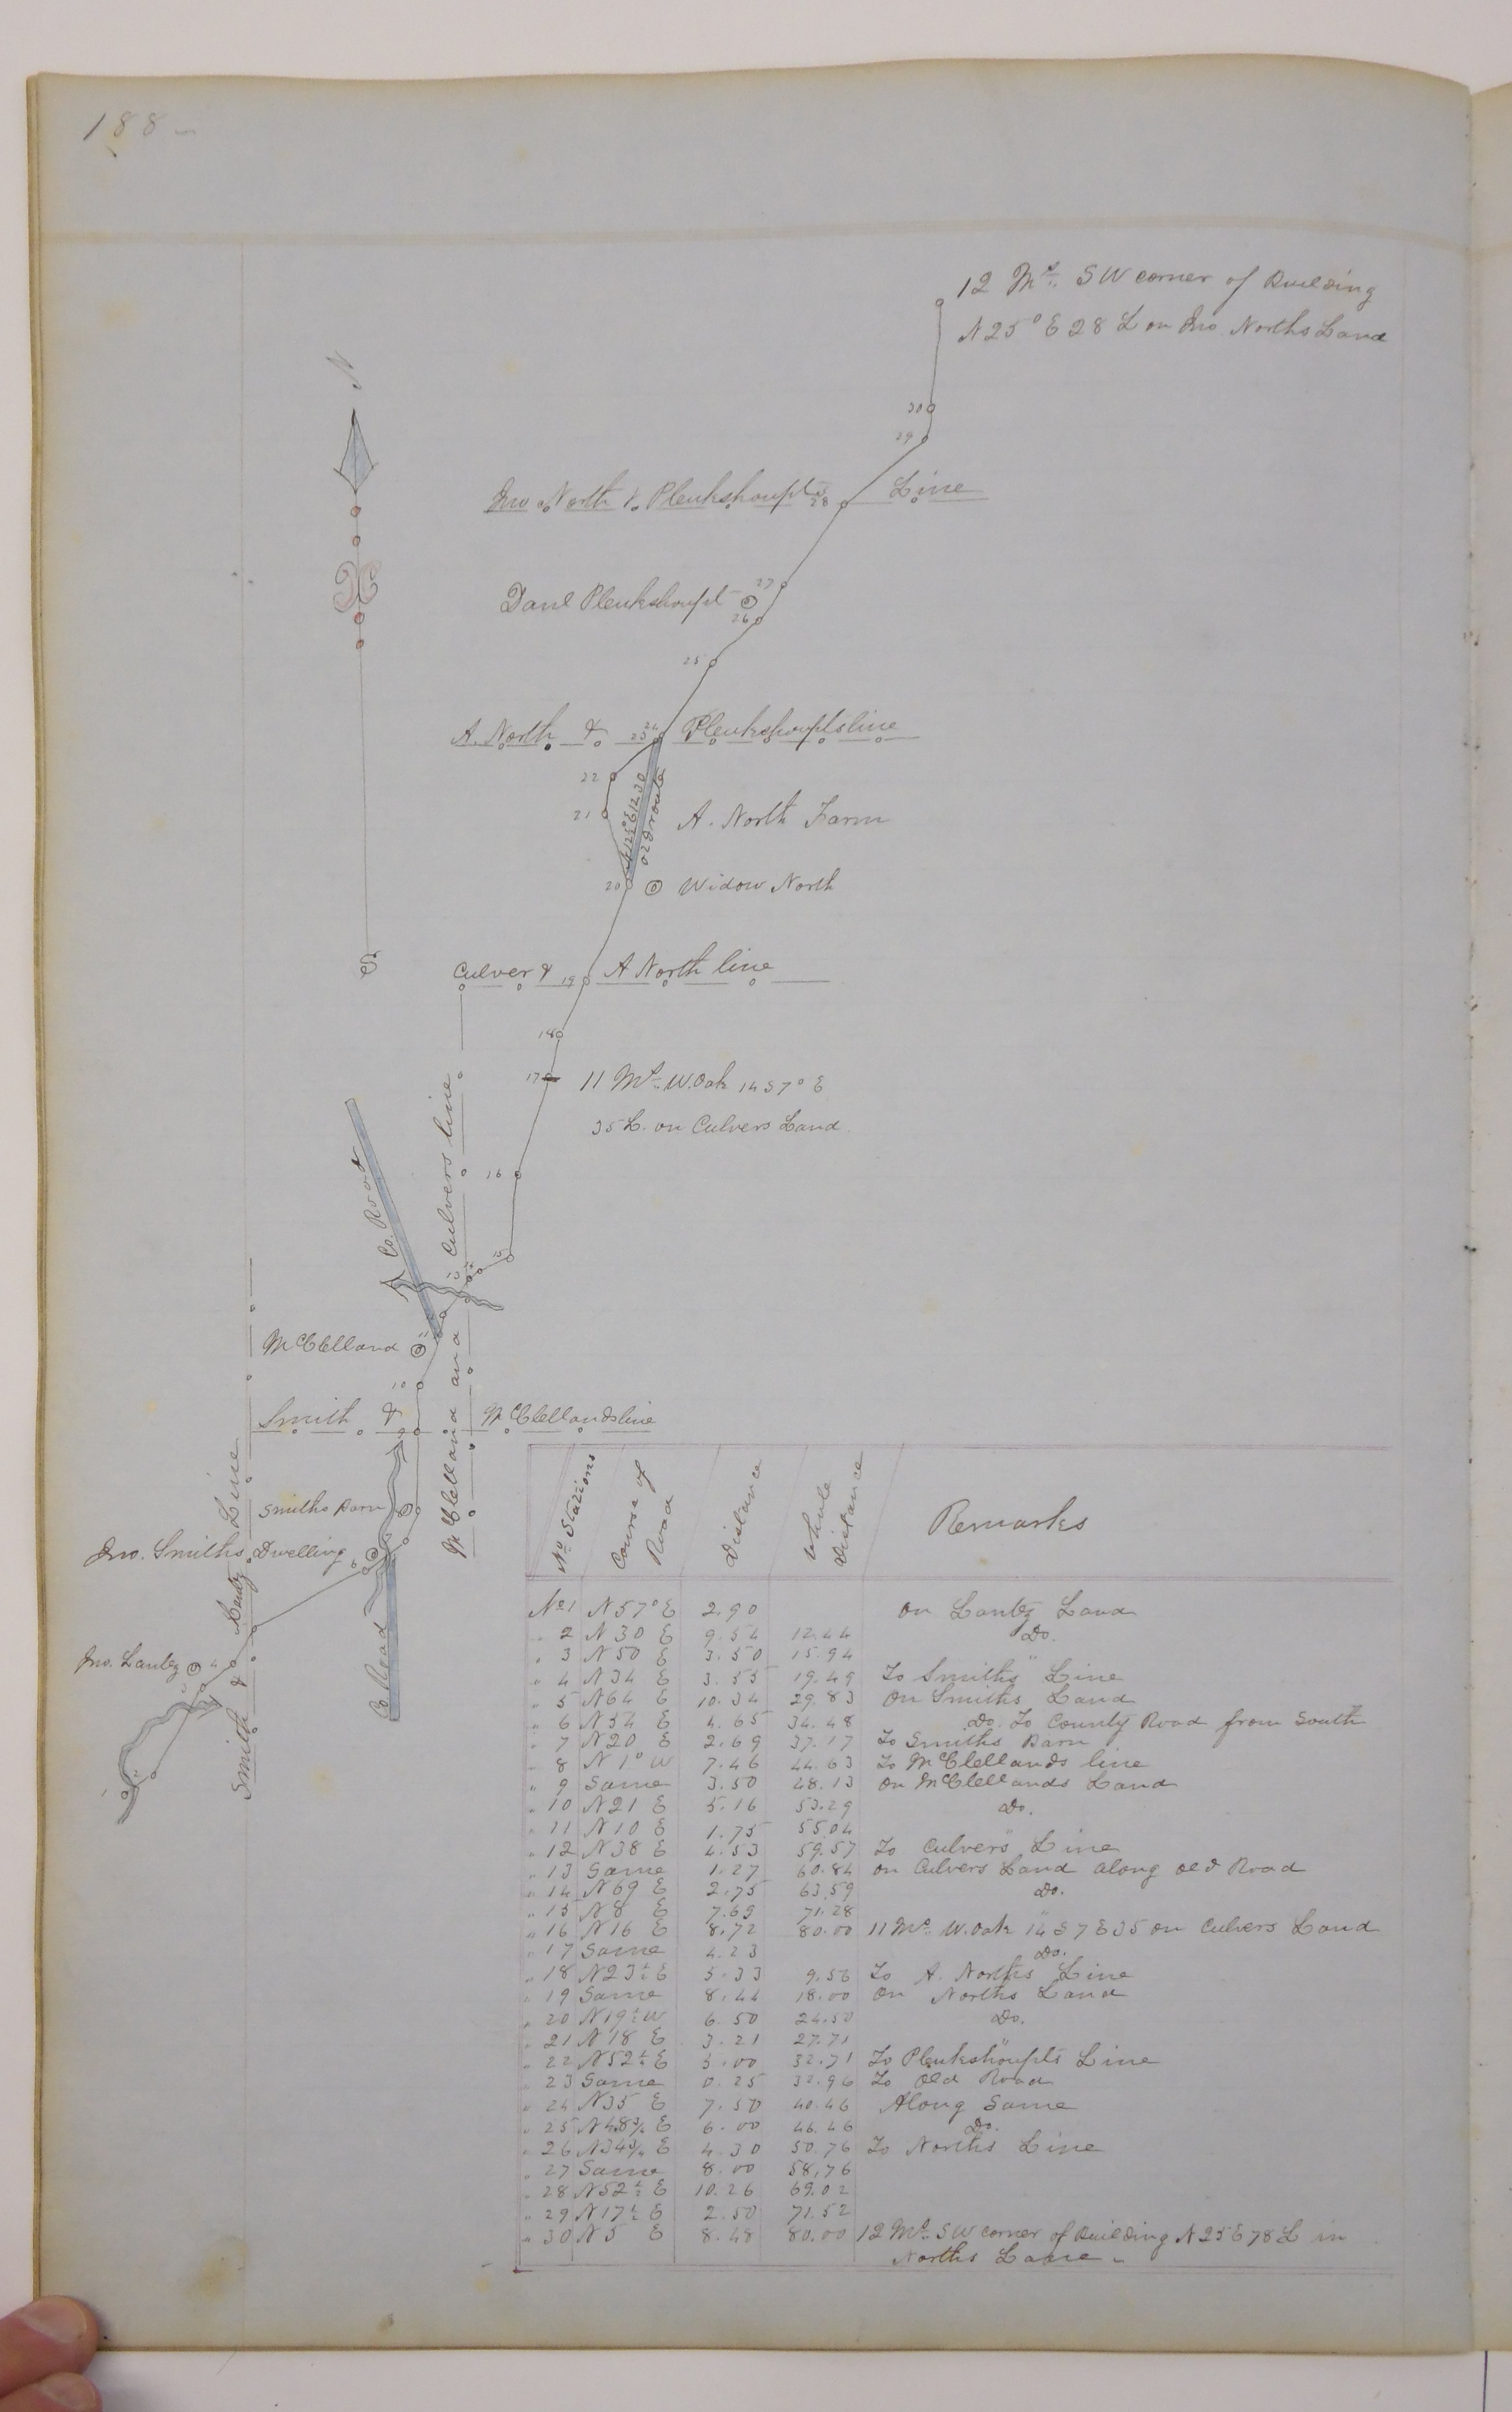 188
12 Ms. SW corner of Building
N 25° E 28 L on Jno Norths Land
N
30
29
Jno North & Pleukshoupts 28 Line
27
Danl Pleukshoupt
26
25
A. North & 23 24 Pleukshoupts line
22
21
N 12 30
old route
A. North Farm
20
Widow North
S
Culver & 19 A North line
18
17 11 Ms. W. Oak 14 S 7° E
35 L. on Culvers Land.
16
Co. Road
McClelland and Culvers line
15
14
13
11
McClelland
10
Smith & McClellands line
9
Smiths Barn
Jno. Smiths Dwelling 6
Smith & Lantz Line
Co Road
Jno. Lantz 4
3
2
1
No. Stations Course of Road Distance Whole Distance Remarks
No 1 N 57° E 2.90 On Lantz Land
" 2 N 30 E 9.54 12.44 Do.
" 3 N 50 E 3.50 15.94
" 4 N 34 E 3.55 19.49 To Smiths Line
" 5 N 64 E 10.34 29.83 On Smiths Land
" 6 N 54 E 4.65 34.48 Do. To County Road from South
" 7 N 20 E 2.69 37.17 To Smiths Barn
" 8 N 1° W 7.46 44.63 To McClellands line
" 9 Same 3.50 48.13 On McClellands Land
" 10 N 21 E 5.16 53.29 Do.
" 11 N 10 E 1.75 55.04
" 12 N 38 E 4.53 59.57 To Culvers Line
" 13 Same 1.27 60.84 on Culvers Land along old Road
" 14 N 69 E 2.75 63.59 Do.
" 15 N 8 E 7.69 71.28
" 16 N 16 E 8.72 80.00 11 Ms. W. Oak 14 S 7 E 35 on Culvers Land
" 17 Same 4.23 Do.
" 18 N 23½ E 5.33 9.56 To A. Norths Line
" 19 Same 8.44 18.00 On Norths Land
" 20 N 19½ W 6.50 24.50 Do.
" 21 N 18 E 3.21 27.71
" 22 N 52½ E 5.00 32.71 To Pleukshoupts Line
" 23 Same 0.25 32.96 To Old Road
" 24 N 35 E 7.50 40.46 Along Same
" 25 N 48¾ E 6.00 46.46 Do.
" 26 N 34¾ E 4.30 50.76 To Norths Line
" 27 Same 8.00 58.76
" 28 N 52½ E 10.26 69.02
" 29 N 17½ E 2.50 71.52
" 30 N 5 E 8.48 80.00 12 Ms. SW corner of Building N 25 E 78 L in
Norths Lane